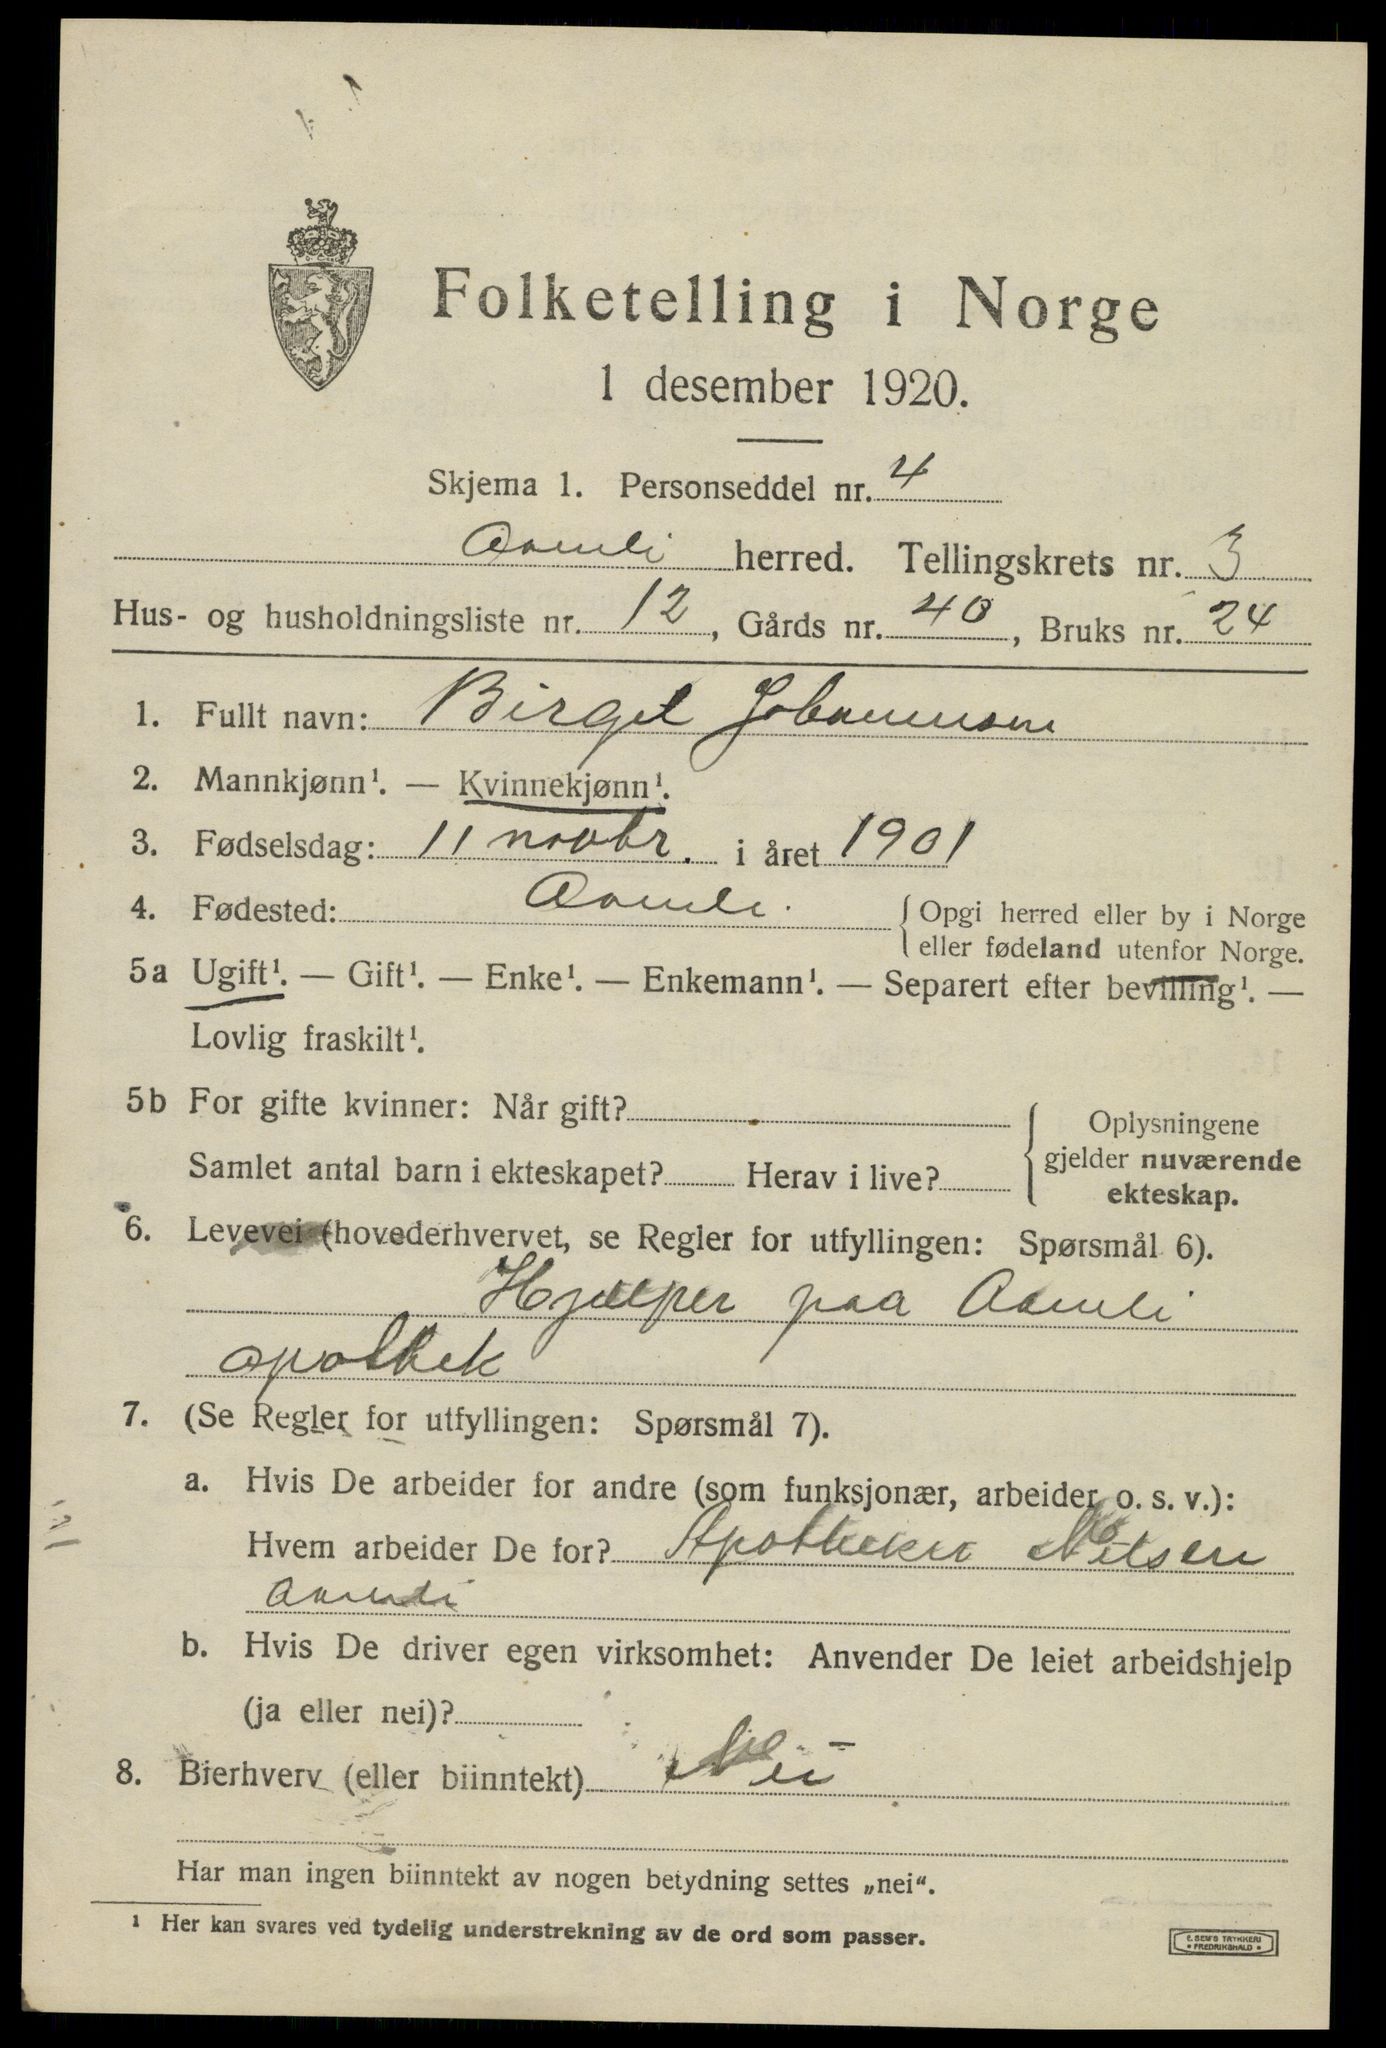 Folketelling i Norge
1 desember 1920.
Skjema 1. Personseddel nr. 4
Aamli herred. Tellingskrets nr. 3
Hus- og husholdningsliste nr. 12, Gårds nr. 40, Bruks nr. 24
1. Fullt navn: Birgit Johannsen
2. Mannkjønn¹. — Kvinnekjønn¹.
3. Fødselsdag: 11 novbr. i året 1901
4. Fødested: Aamli. { Opgi herred eller by i Norge
eller fødeland utenfor Norge.
5a Ugift¹. — Gift¹. — Enke¹. — Enkemann¹. — Separert efter bevilling¹. —
Lovlig fraskilt¹.
5b For gifte kvinner: Når gift?
Samlet antal barn i ekteskapet? Herav i live?
Oplysningene
gjelder nuværende
ekteskap.
6. Levevei (hovederhvervet, se Regler for utfyllingen: Spørsmål 6).
Hjælper paa Aamli
apothek
7. (Se Regler for utfyllingen: Spørsmål 7).
a. Hvis De arbeider for andre (som funksjonær, arbeider o. s. v.):
Hvem arbeider De for? Apotheker Nilsen
Aamli
b. Hvis De driver egen virksomhet: Anvender De leiet arbeidshjelp
(ja eller nei)?
8. Bierhverv (eller biinntekt) Nei
Har man ingen biinntekt av nogen betydning settes „nei“.
¹ Her kan svares ved tydelig understrekning av de ord som passer.
E. SEM'S TRYKKERI
• FREDRIKSHALD •